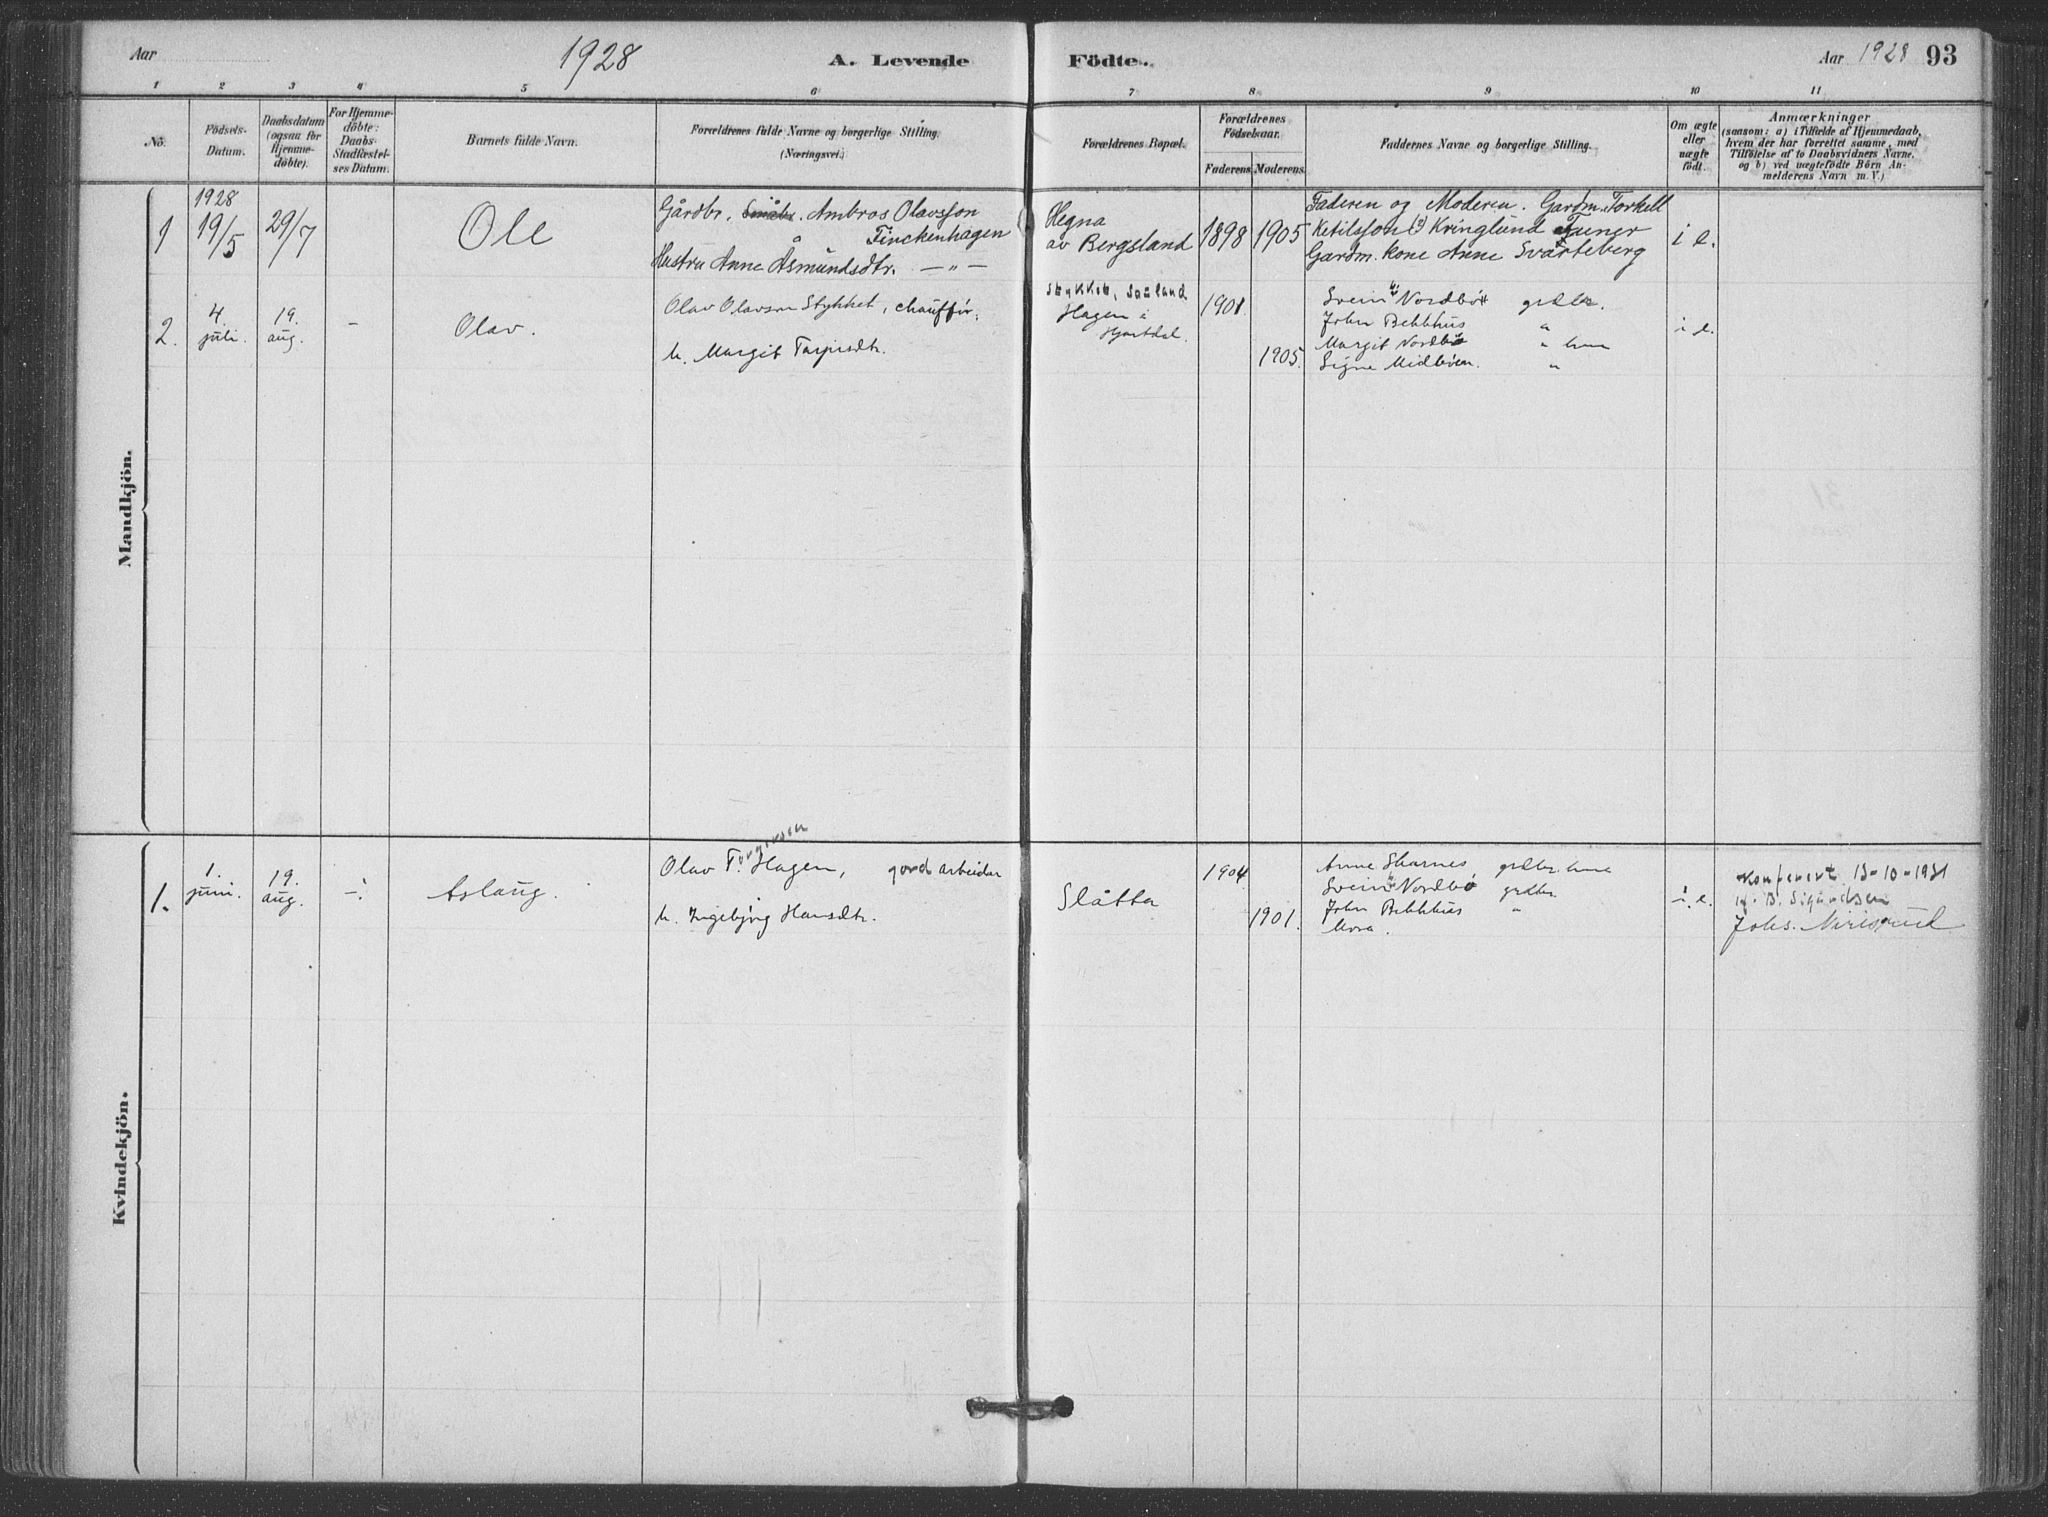 Aar
1928
A. Levende
Födte.
Aar 1928 93
1 2 3 4 5 6 7 8 9 10 11
No.
Födsels-
Datum.
Daabsdatum
(ogsaa for
Hjemme-
döbte).
For Hjemme-
döbte:
Daabs-
Stadfæstel-
ses Datum.
Barnets fulde Navn.
Forældrenes fulde Navne og borgerlige Stilling.
(Næringsvei.)
Forældrenes Bopæl.
Forældrenes
Födselsaar.
Faderens. Moderens.
Faddernes Navne og borgerlige Stilling.
Om ægte
eller
uægte
födt.
Anmærkninger
(saasom: a) i Tilfælde af Hjemmedaab,
hvem der har forrettet samme, med
Tilföielse af to Daabsvidners Navne,
og b) ved uægtefödte Börn An-
melderens Navn m. V.)
Mandkjön.
1
1928
19/5
29/7
Ole
Gårdbr. Småbr. Ambros Olavsson
Finckenhagen
Hustru Anne Åsmundsdtr. — " —
Hegna
av Bergsland
1898 1905
Faderen og Moderen. Gardm. Torkell
Ketilsson Kringlund
Gardm. kone Anne Svarteberg
i e.
2.
4.
juli.
19.
aug.
-
Olav.
Olav Olavson Stykket, chauffør.
h. Margit Torjusdtr.
Stykket, Sauland
Hagen i
Hjartdal.
1901.
1905.
Svein Nordbø
John Bekkhus "
Margit Nordbø "
Signe Midbøen. "
i e.
Kvindekjön.
1.
1.
juni.
19.
aug.
Aslaug.
Olav T. Hagen, gardarbeider
h. Ingebjørg Hansdtr.
Slåtta
1904
1901.
Anne Skarnes
Svein Nordbø
John Bekkhus "
Mora.
i. e.
13-10-1931
B. Sigurdsen
Johs.